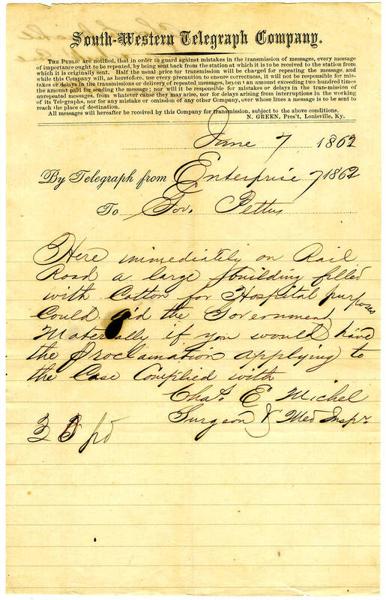 South-Western Telegraph Company.
THE PUBLIC are notified, that in order to guard against mistakes in the transmission of messages, every message
of importance ought to be repeated, by being sent back from the station at which it is to be received to the station from
which it is originally sent. Half the usual price for transmission will be charged for repeating the message, and
while this Company will, as heretofore, use every precaution to ensure correctness, it will not be responsible for mis-
takes or delays in the transmission or delivery of repeated messages, beyond an amount exceeding two hundred times
the amount paid for sending the message; nor will it be responsible for mistakes or delays in the transmission of
unrepeated messages, from whatever cause they may arise, nor for delays arising from interruptions in the working
of its Telegraphs, nor for any mistake or omission of any other Company, over whose lines a message is to be sent to
reach the place of destination.
All messages will hereafter be received by this Company for transmission, subject to the above conditions.
N. GREEN, Pres't, Louisville, Ky.
June 7 1862
By Telegraph from Enterprise 7 1862
To Gov. Pettus
Here immediately on Rail
Road a large building filled
with Cotton for Hospital purposes
Could aid the Government
Materially if you would have
the Proclamation applying to
the Case Complied with
Chas. E Michel
Surgeon & Med Inspr
33 pd